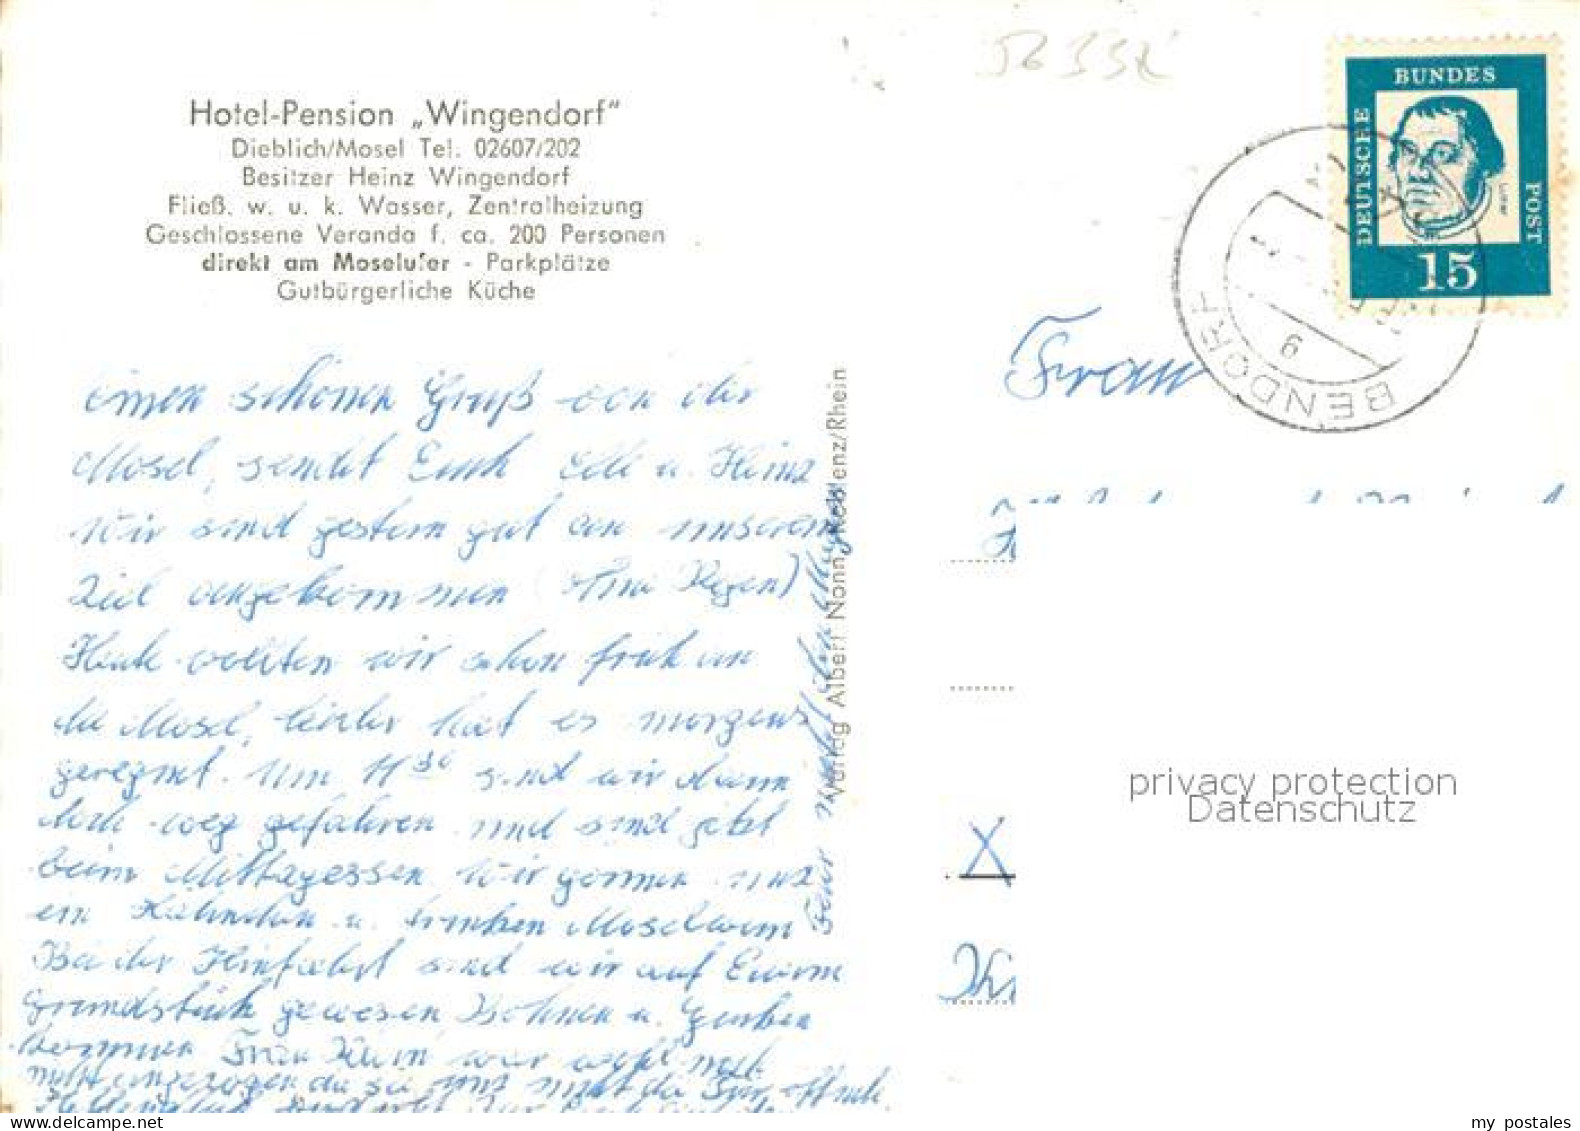 56332
Hotel-Pension „Wingendorf"
Dieblich/Mosel Tel. 02607/202
Besitzer Heinz Wingendorf
Fließ. w. u. k. Wasser, Zentralheizung
Geschlossene Veranda f. ca. 200 Personen
direkt am Moselufer - Parkplätze
Gutbürgerliche Küche
einen schönen Gruß von der
Mosel, sendet Euch u. Heinz
Wir sind gestern gut an unserem
Ziel angekommen (ohne Regen)
Heute wollten wir schon früh an
die Mosel, leider hat es morgens
geregnet. Um 11 30 sind wir dann
doch weg gefahren und sind jetzt
beim Mittagessen. Wir gönnen uns
ein Hähnchen u. trinken Moselwein
Bei der Hinfahrt sind wir auf Eurem
Grundstück gewesen Bohnen u. Gurken
kommen Frau war wohl noch
nicht da sie uns nicht die Tür
Verlag Albert Nonn, Koblenz/Rhein
DEUTSCHE
BUNDES
POST
Luther
15
BENDORF
Frau
X
privacy protection
Datenschutz
my postales
www.delcampe.net